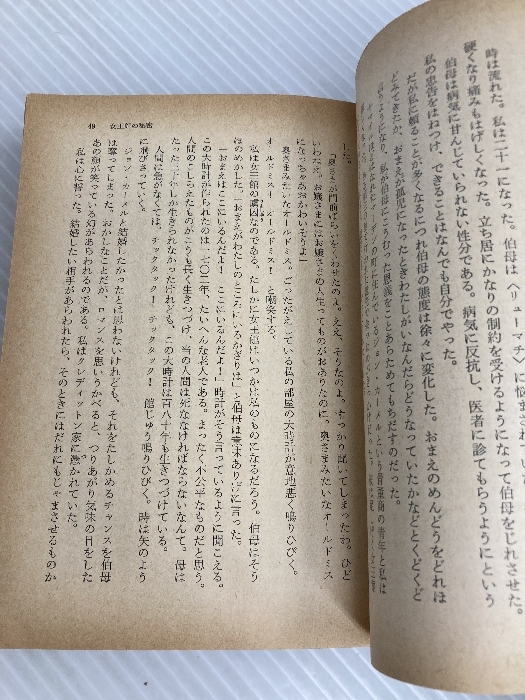 時は流れた。私は二十一になった。伯母は〈リューマチ〉に悩まされ
硬くなり痛みもはげしくなった。立ち居にかなりの制約を受けるようになって伯母を
伯母は病気に甘んじていられない性分である。病気に反抗し、医者に診てもらうようにという
私の忠告をはねつけ、できることはなんでも自分でやった。
だが私に頼ることが多くなるにつれ伯母の態度は徐々に変化した。おまえのめんどうをどれほ
どみてきたか、おまえが孤児になったときわたしがいなんだらどうなっていたかなどとくどくど
言うようになり、私が伯母にこうむった恩義をことあらためてもちだすのだった。
49 女王館の秘密
した。
「奥さまが門前ばらいをくわせたのよ。ええ、そうなのよ。すっかり聞いてしまったわ。ひど
いわねえ。お嬢さまにはお嬢さまの人生ってものがおありなのに。奥さまみたいなオールドミス
になっちゃあおかわいそうよ」
奥さまみたいなオールドミス。ごったがえしている私の部屋の大時計が意地悪く鳴りひびく。
オールドミス！オールドミス！ と嘲笑する。
私は女王館の虜囚なのである。たしかに女王館はいつかは私のものになるだろう。伯母はそう
ほのめかした。「おまえがわたしのところにいるかぎりは」と伯母は意味ありげに言った。
「おまえはここにいるんだよ！ ここにいるんだよ！」時計がそう言っているように聞こえる。
この大時計が作られたのは一七〇二年、たいへんな老人である。まったく不公平なものだと思う。
人間のこしらえたものがこうも長く生きつづけ、当の人間は死ななければならないなんて。母は
たった三十しか生きられなかったけれども、この大時計は百八十年も生きつづけている。
人間は急がなくては。チックタック！ チックタック！ 館じゅう鳴りひびく。時は矢のよう
に飛びさっていく。
ジョン・カーメルと結婚したかったとは思わないけれども、それをたしかめるチャンスを伯母
は奪ってしまった。おかしなことだが、ロマンスを思いうかべると、つりあがり気味の目をした
あの顔が笑っている幻があらわれるのである。私はクレディットン家に憑かれていた。
私は心に誓った。結婚したい相手があらわれたら、そのときにはだれにもじゃまさせるものか